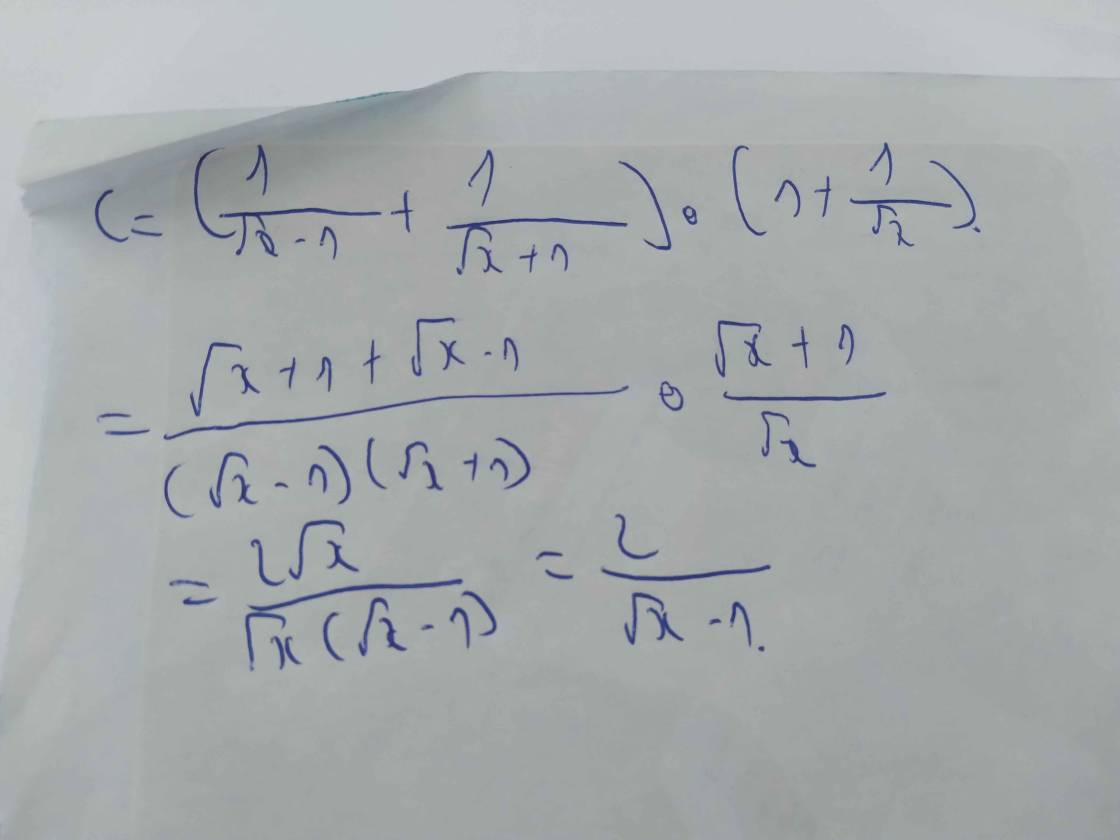 C = (1/(√x - 1) + 1/(√x + 1)) · (1 + 1/√x).
= (√x + 1 + √x - 1)/((√x - 1)(√x + 1)) · (√x + 1)/√x
= 2√x/(√x(√x - 1)) = 2/(√x - 1).